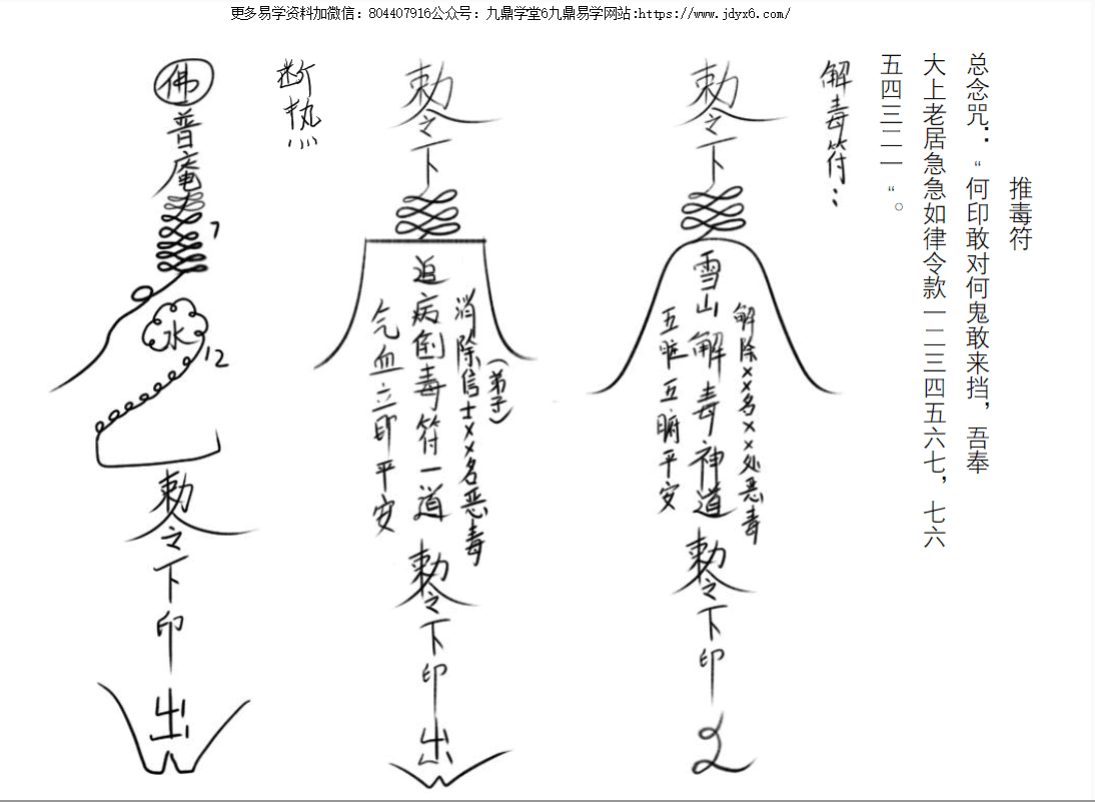 更多易学资料加微信：804407916公众号：九鼎学堂6九鼎易学网站:https://www.jdyx6.com/
推毒符
总念咒：“何印敢对何鬼敢来挡，吾奉
大上老居急急如律令款一二三四五六七，七六
五四三二一“。
解毒符：
敕令下
解除××名××处恶毒
雪山解毒神道
五脏五腑平安
敕令下印
敕令下
消除信士××名恶毒
（弟子）
追病倒毒符一道
气血立即平安
敕令下印出
断热
佛普庵
7
水
12
敕令下印出